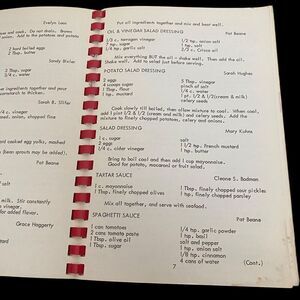 Evelyn Laos
and cook. Do not drain. Brown
Add to the potatoes and pototo
2 hard boiled eggs
2 tbsp. butter
Sandy Bixler
2 Tbsp. sugar
1/4 c. water
Sarah B.
c. cider vinegar
finely chopped onions
cooked egg yolks, mashed
(bean sprouts may be added).
Pat Beane
milk. Stir constantly
for added flavor.
Grace Haggerty
Put all ingredients together and mix and beat well.
OIL & VINEGAR SALAD DRESSING Pat Beane
1/3 c. tarragon vinegar
7 tsp. sugar
1/4 tsp. garlic salt
1 tsp. onion salt
salt
2/3 c. Crisco oil
Mix everything BUT the oil - shake well. Then add the oil.
Shake well. Add to salad just before serving.
POTATO SALAD DRESSING Sarah Hughes
2 eggs
4 scoops sugar
1 Tbsp. flour
1 tsp. mustard
5 Tbsp. vinegar
pinch of salt
1/4 c. water
1 pt. 1/2 & 1/2(cream & milk)
celery seeds
Cook slowly till boiled, then allow mixture to cool. When cool,
add 1 pint 1/2 & 1/2(cream and milk) and celery seeds. Add the
mixture to finely chopped potatoes, celery, and onions.
SALAD DRESSING Mary Kuhns
1 c. sugar
2 eggs
2 tbsp. cornstarch
salt
1 1/2 tsp. French mustard
1 tbsp. butter
Bring to boil cool and then add 1 cup mayonnaise.
Good for potato, macaroni or fruit salad.
TARTAR SAUCE Cleone S. Bodman
1 c. mayonnaise
1 Tbsp. finely chopped olives
1 Tbsp. finely chopped sour pickles
1 tsp. finely chopped parsley
Mix all together, and serve with seafood.
SPAGHETTI SAUCE Pat Beane
2 can tomatoes
2 cans tomato paste
1 Tbsp. olive oil
1 Tbsp. sugar
1/4 tsp. garlic powder
1 tsp. basil
salt and pepper
1 tsp. onion salt
1/8 tsp. cinnamon
4 cans of water
7
(Cont.)